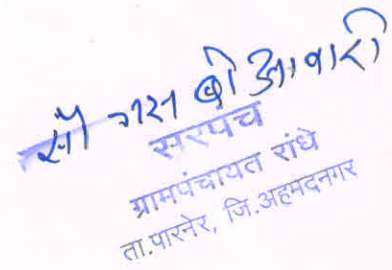 सौ बी आवारी
सरपंच
ग्रामपंचायत रांधे
ता.पारनेर, जि.अहमदनगर